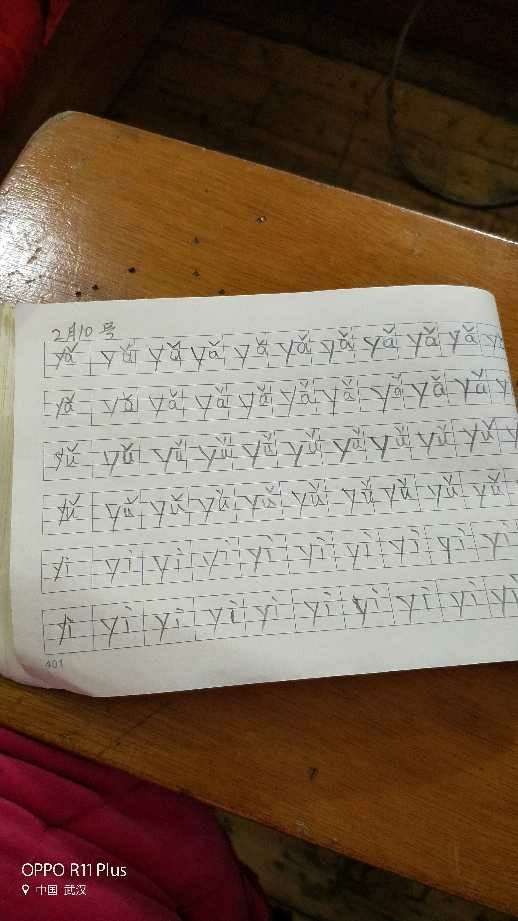 2月10号
yǎ yǎ yǎ yǎ yǎ yǎ yǎ yǎ yǎ yǎ
yǎ yǎ yǎ yǎ yǎ yǎ yǎ yǎ yǎ yǎ y
yǔ yǔ yǔ yǔ yǔ yǔ yǔ yǔ yǔ yǔ y
yǔ yǔ yǔ yǔ yǔ yǔ yǔ yǔ yǔ yǔ
yì yì yì yì yì yì yì yì yì yì
yì yì yì yì yì yì yì yì yì yì
401
OPPO R11 Plus
中国 武汉